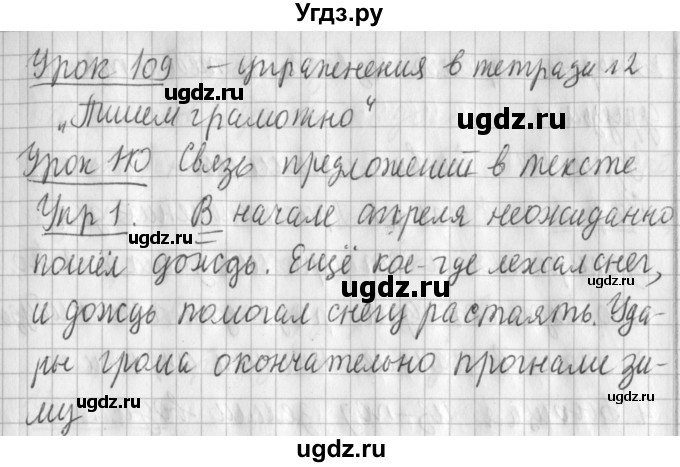 Угдз.ру
Урок 109 – упражнения в тетради №2
„Пишем грамотно“
ugdz.ru
Урок 110 Связь предложений в тексте
ugdz.ru
Упр 1. В начале апреля неожиданно
ugdz.ru
пошёл дождь. Ещё кое-где лежал снег,
ugdz.ru
ugdz.ru
и дождь помогал снегу растаять. Уда-
ры грома окончательно прогнали зи-
ugdz.ru
ugdz.ru
му
ugdz.ru